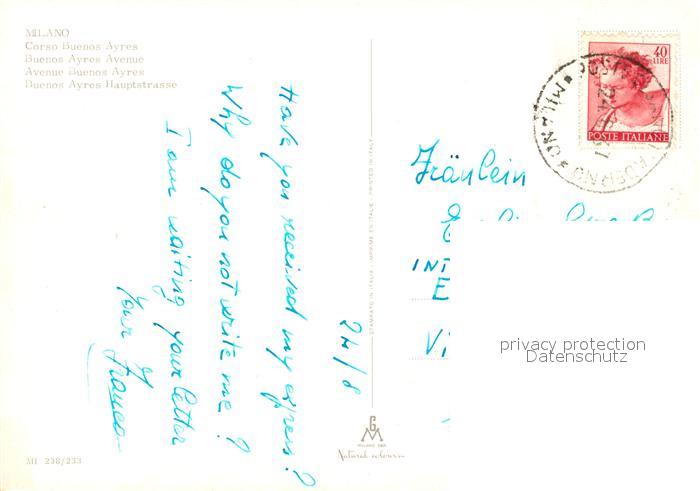 MILANO
Corso Buenos Ayres
Buenos Ayres Avenue
Avenue Buenos Ayres
Buenos Ayres Hauptstrasse
24/8
Have you received my expres?
Why do you not write me?
I am waiting your letter
Your
Franco
STAMPATO IN ITALIA - IMPRIMÉ EN ITALIE - PRINTED IN ITALY
40
LIRE
POSTE ITALIANE
MILANO
Fräulein
INT
E
Vi
privacy protection
Datenschutz
GM
Natural colours
MI 238/233